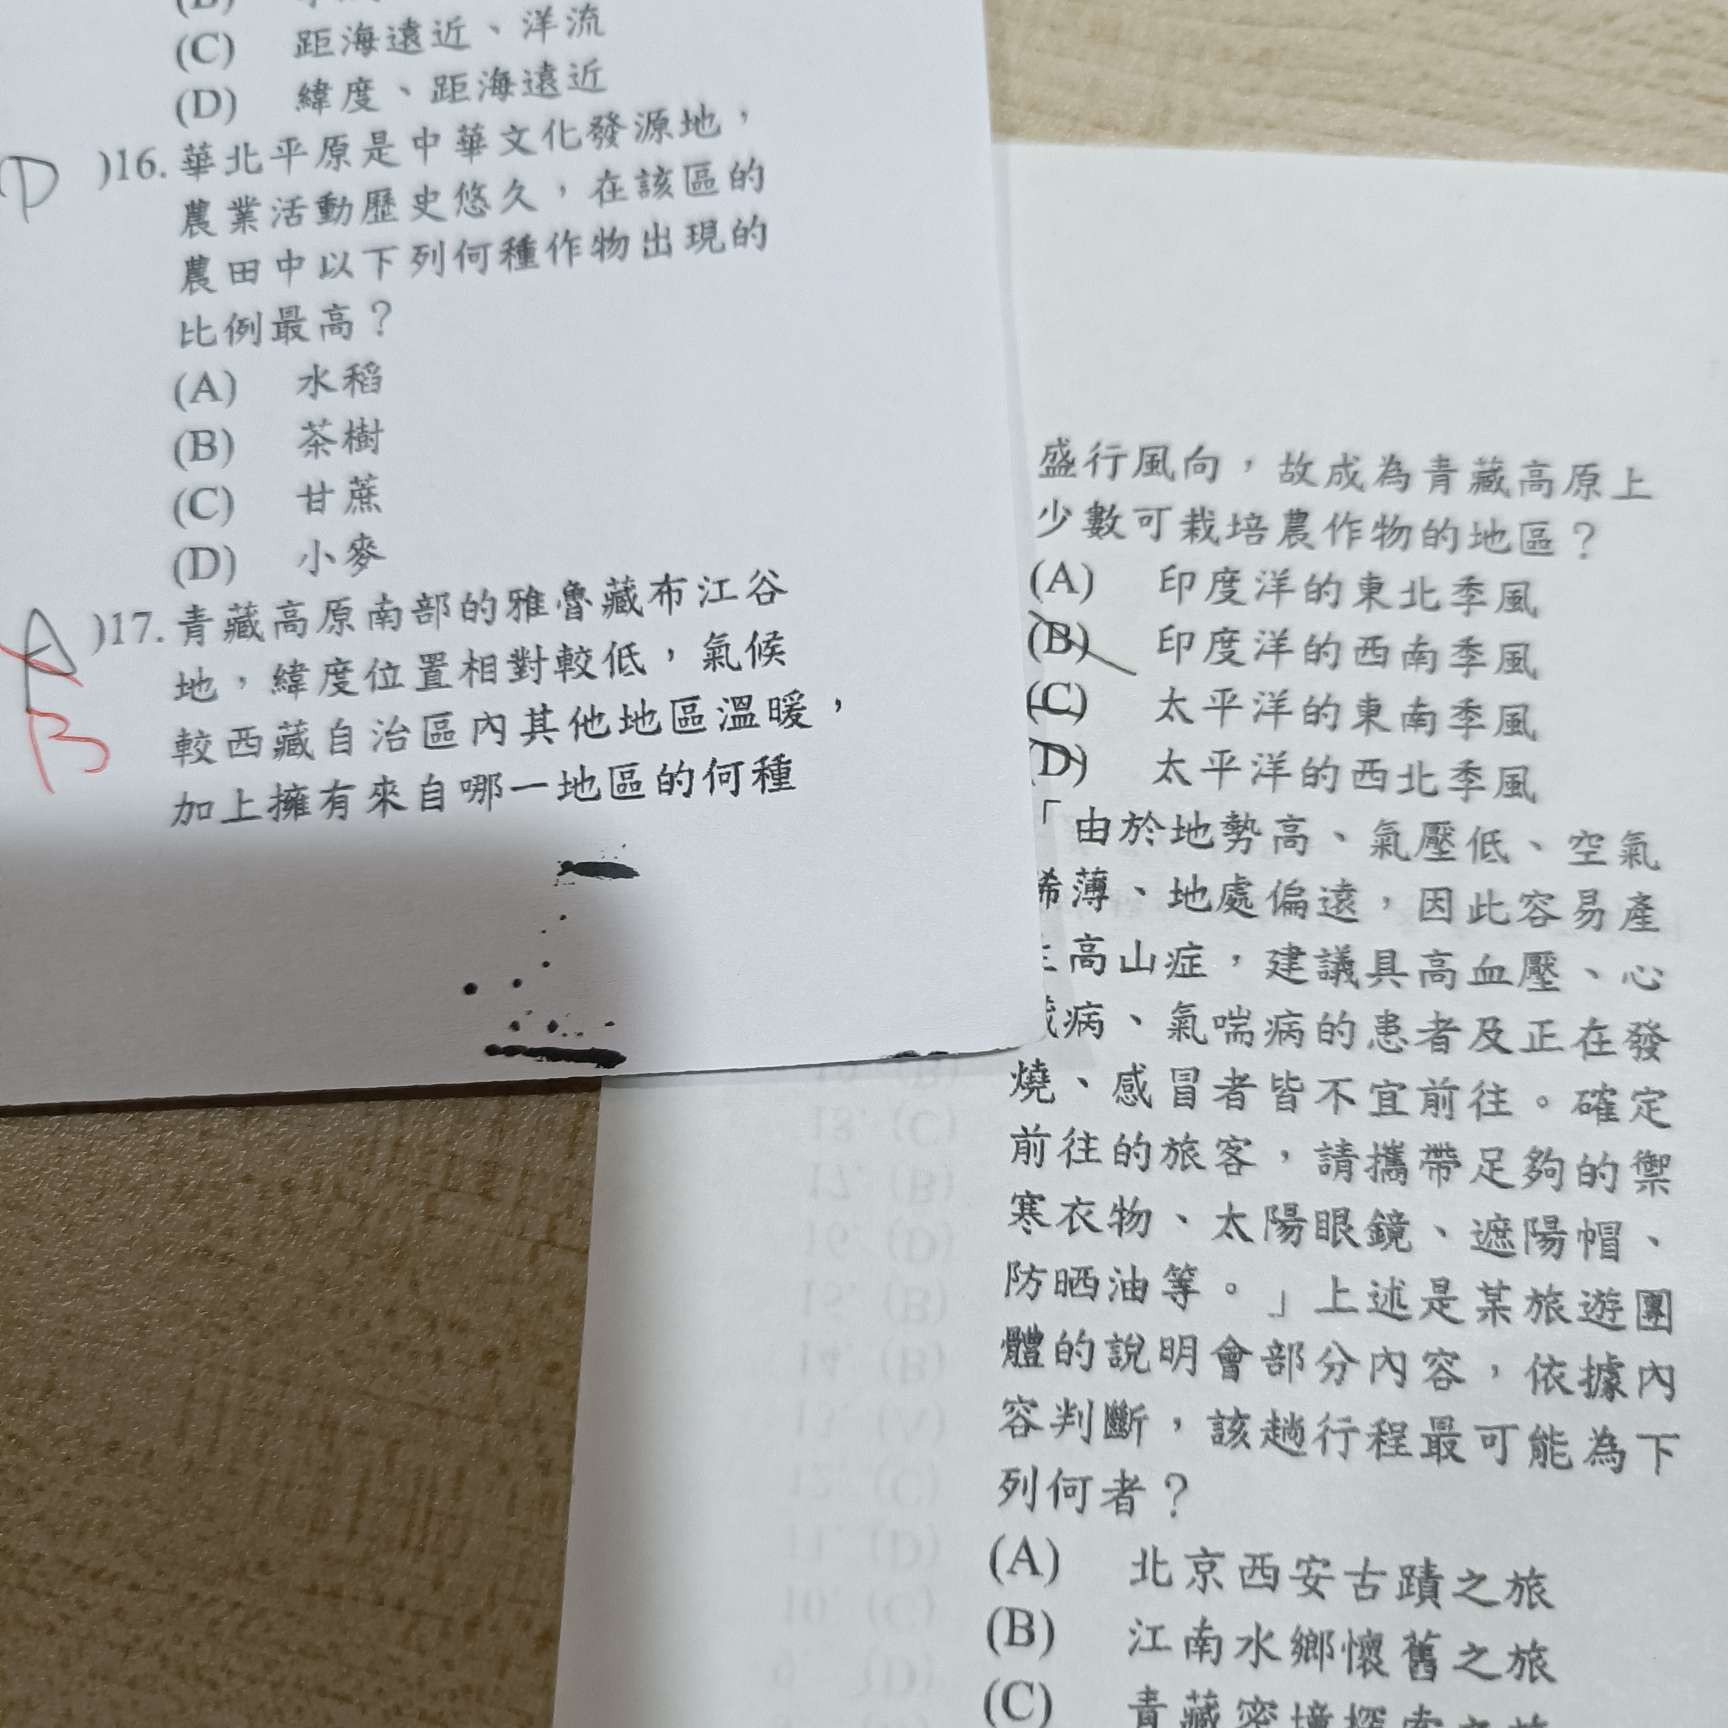 (C) 距海遠近、洋流
(D) 緯度、距海遠近
D )16. 華北平原是中華文化發源地，
農業活動歷史悠久，在該區的
農田中以下列何種作物出現的
比例最高？
(A) 水稻
(B) 茶樹
(C) 甘蔗
(D) 小麥
A )17. 青藏高原南部的雅魯藏布江谷
B
地，緯度位置相對較低，氣候
較西藏自治區內其他地區溫暖，
加上擁有來自哪一地區的何種
盛行風向，故成為青藏高原上
少數可栽培農作物的地區？
(A) 印度洋的東北季風
(B) 印度洋的西南季風
(C) 太平洋的東南季風
(D) 太平洋的西北季風
「由於地勢高、氣壓低、空氣
稀薄、地處偏遠，因此容易產
高山症，建議具高血壓、心
病、氣喘病的患者及正在發
燒、感冒者皆不宜前往。確定
前往的旅客，請攜帶足夠的禦
寒衣物、太陽眼鏡、遮陽帽、
防晒油等。」上述是某旅遊團
體的說明會部分內容，依據內
容判斷，該趟行程最可能為下
列何者？
(A) 北京西安古蹟之旅
(B) 江南水鄉懷舊之旅
(C) 青藏密境探索之旅
18. (C)
17. (B)
16. (D)
15. (B)
14. (B)
13. (A)
12. (C)
11. (D)
10. (C)
9. (D)